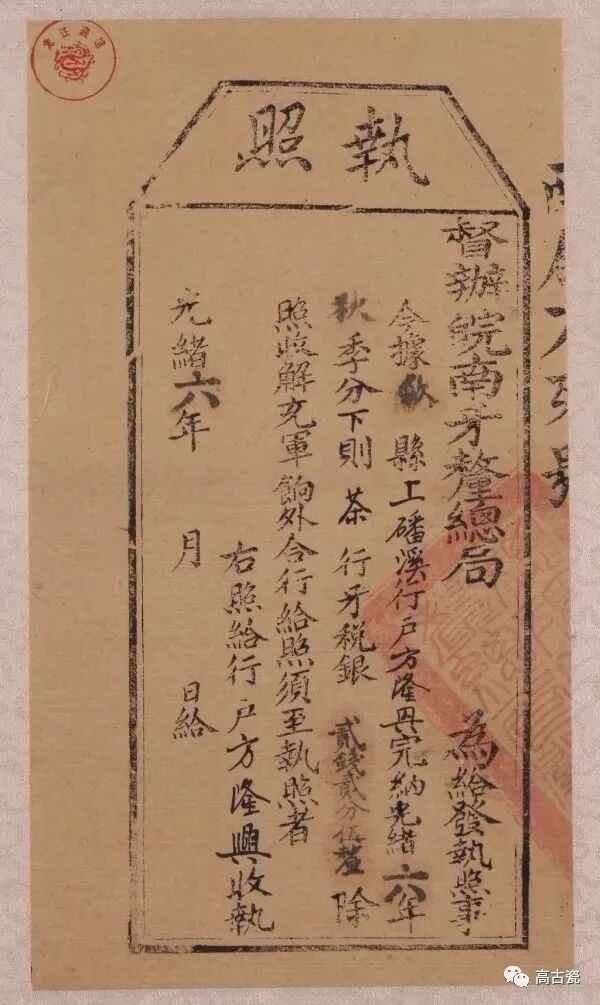 執照
督辦皖南牙釐總局 為給發執照事
今據歙 縣上磻溪行戶方隆興完納光緒六年
秋季分下則 茶 行牙稅銀 貳錢貳分伍釐 除
照收解充軍餉外合行給照須至執照者
右照給行戶方隆興收執
光緒六年 月 日給
高古瓷